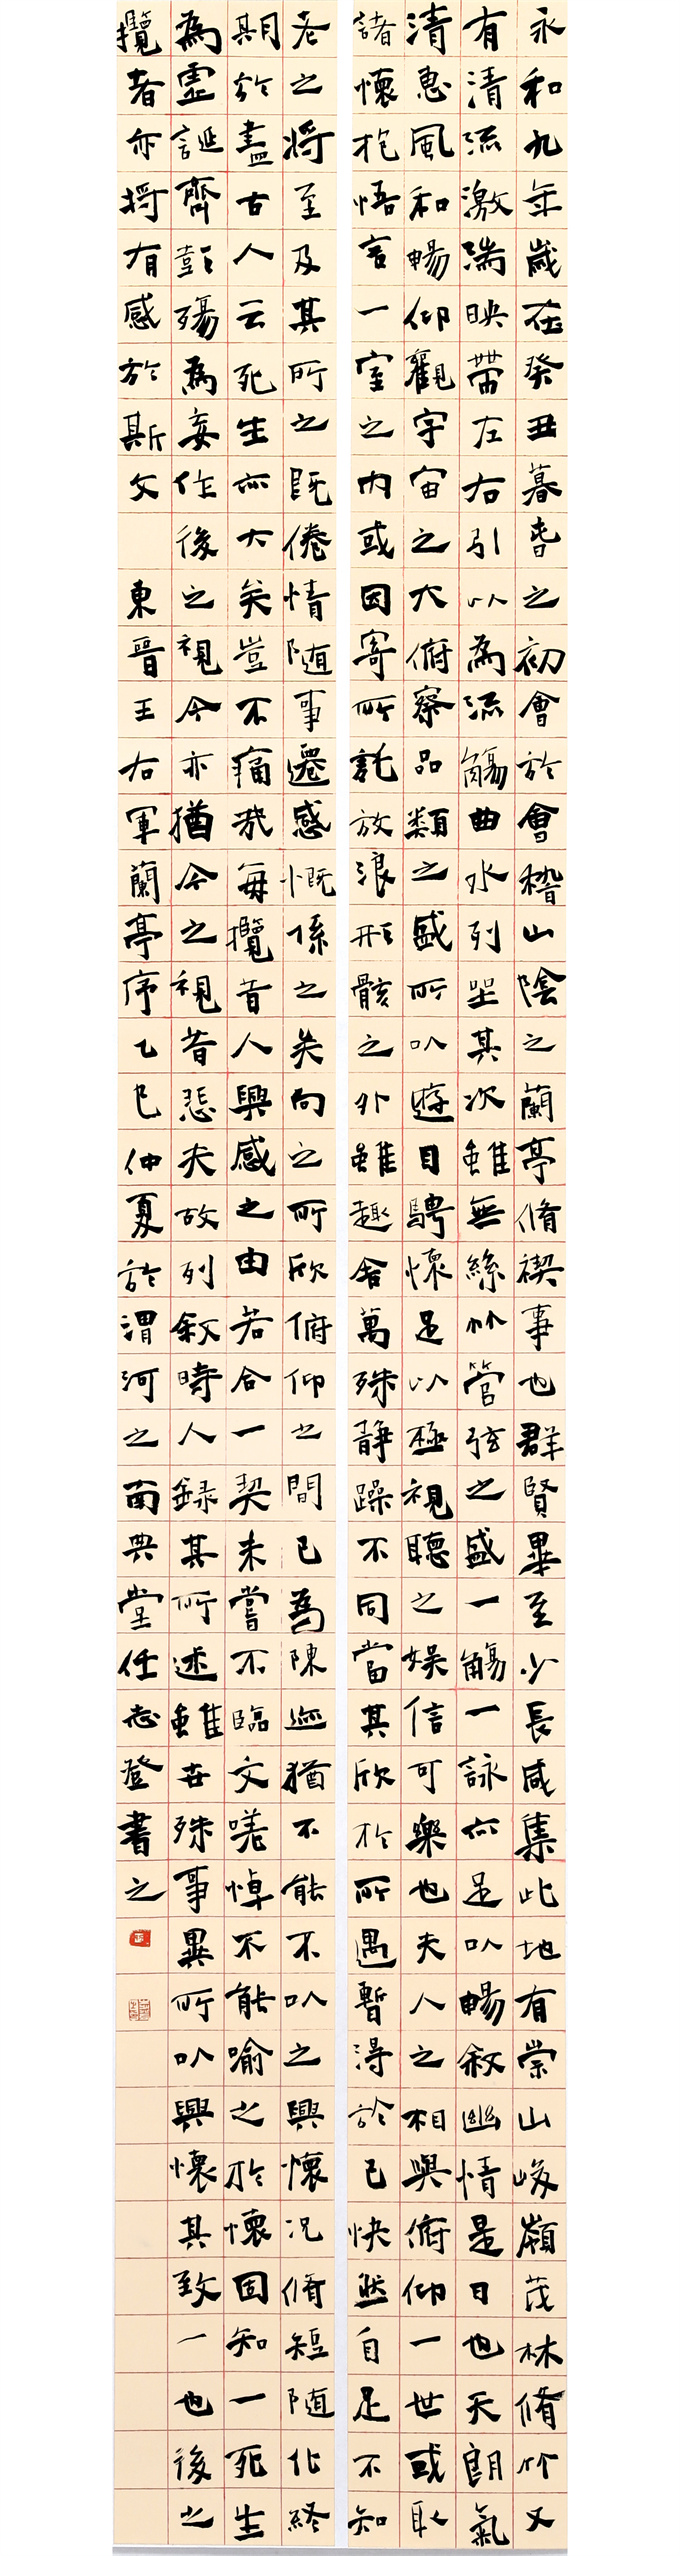 永和九年歲在癸丑暮春之初會於會稽山陰之蘭亭脩禊事也群賢畢至少長咸集此地有崇山峻嶺茂林脩竹又
有清流激湍映帶左右引以為流觴曲水列坐其次雖無絲竹管弦之盛一觴一詠亦足以暢敘幽情是日也天朗氣
清惠風和暢仰觀宇宙之大俯察品類之盛所以遊目騁懷足以極視聽之娛信可樂也夫人之相與俯仰一世或取
諸懷抱悟言一室之內或因寄所託放浪形骸之外雖趣舍萬殊靜躁不同當其欣於所遇暫得於己快然自足不知
老之將至及其所之既倦情隨事遷感慨係之矣向之所欣俯仰之間已為陳迹猶不能不以之興懷況脩短隨化終
期於盡古人云死生亦大矣豈不痛哉每攬昔人興感之由若合一契未嘗不臨文嗟悼不能喻之於懷固知一死生
為虛誕齊彭殤為妄作後之視今亦猶今之視昔悲夫故列敘時人録其所述雖世殊事異所以興懷其致一也後之
攬者亦將有感於斯文 東晉王右軍蘭亭序乙巳仲夏於渭河之南典堂任志登書之